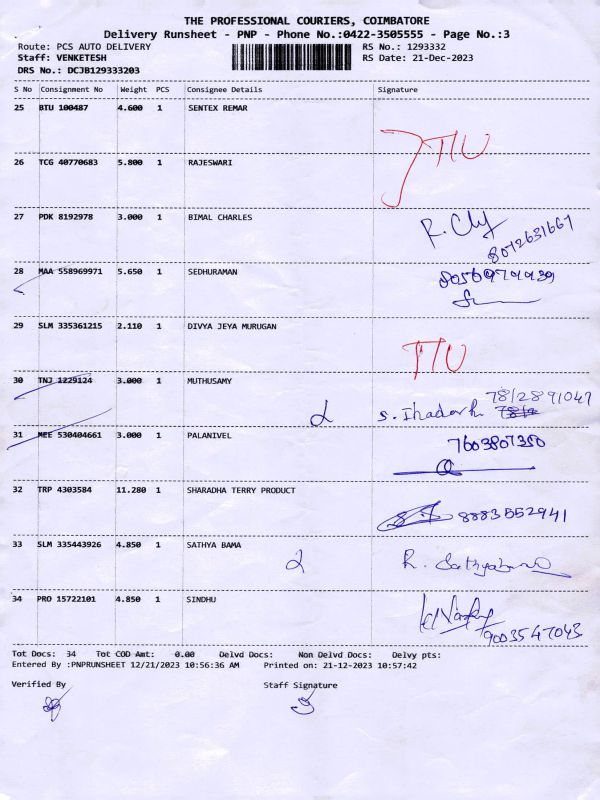 THE PROFESSIONAL COURIERS, COIMBATORE
Delivery Runsheet - PNP - Phone No.:0422-3505555 - Page No.:3
Route: PCS AUTO DELIVERY RS No.: 1293332
Staff: VENKETESH RS Date: 21-Dec-2023
DRS No.: DCJB129333203
S No Consignment No Weight PCS Consignee Details Signature
25 BTU 100487 4.600 1 SENTEX REMAR
26 TCG 40770683 5.800 1 RAJESWARI
27 PDK 8192978 3.000 1 BIMAL CHARLES
8072631667
28 MAA 558969971 5.650 1 SEDHURAMAN
29 SLM 335361215 2.110 1 DIVYA JEYA MURUGAN
30 TNJ 1229124 3.000 1 MUTHUSAMY
31 MEE 530404661 3.000 1 PALANIVEL 7603807350
32 TRP 4303584 11.280 1 SHARADHA TERRY PRODUCT
8883552941
33 SLM 335443926 4.850 1 SATHYA BAMA
34 PRO 15722101 4.850 1 SINDHU
9003547043
Tot Docs: 34 Tot COD Amt: 0.00 Delvd Docs: Non Delvd Docs: Delvy pts:
Entered By :PNPRUNSHEET 12/21/2023 10:56:36 AM Printed on: 21-12-2023 10:57:42
Verified By Staff Signature